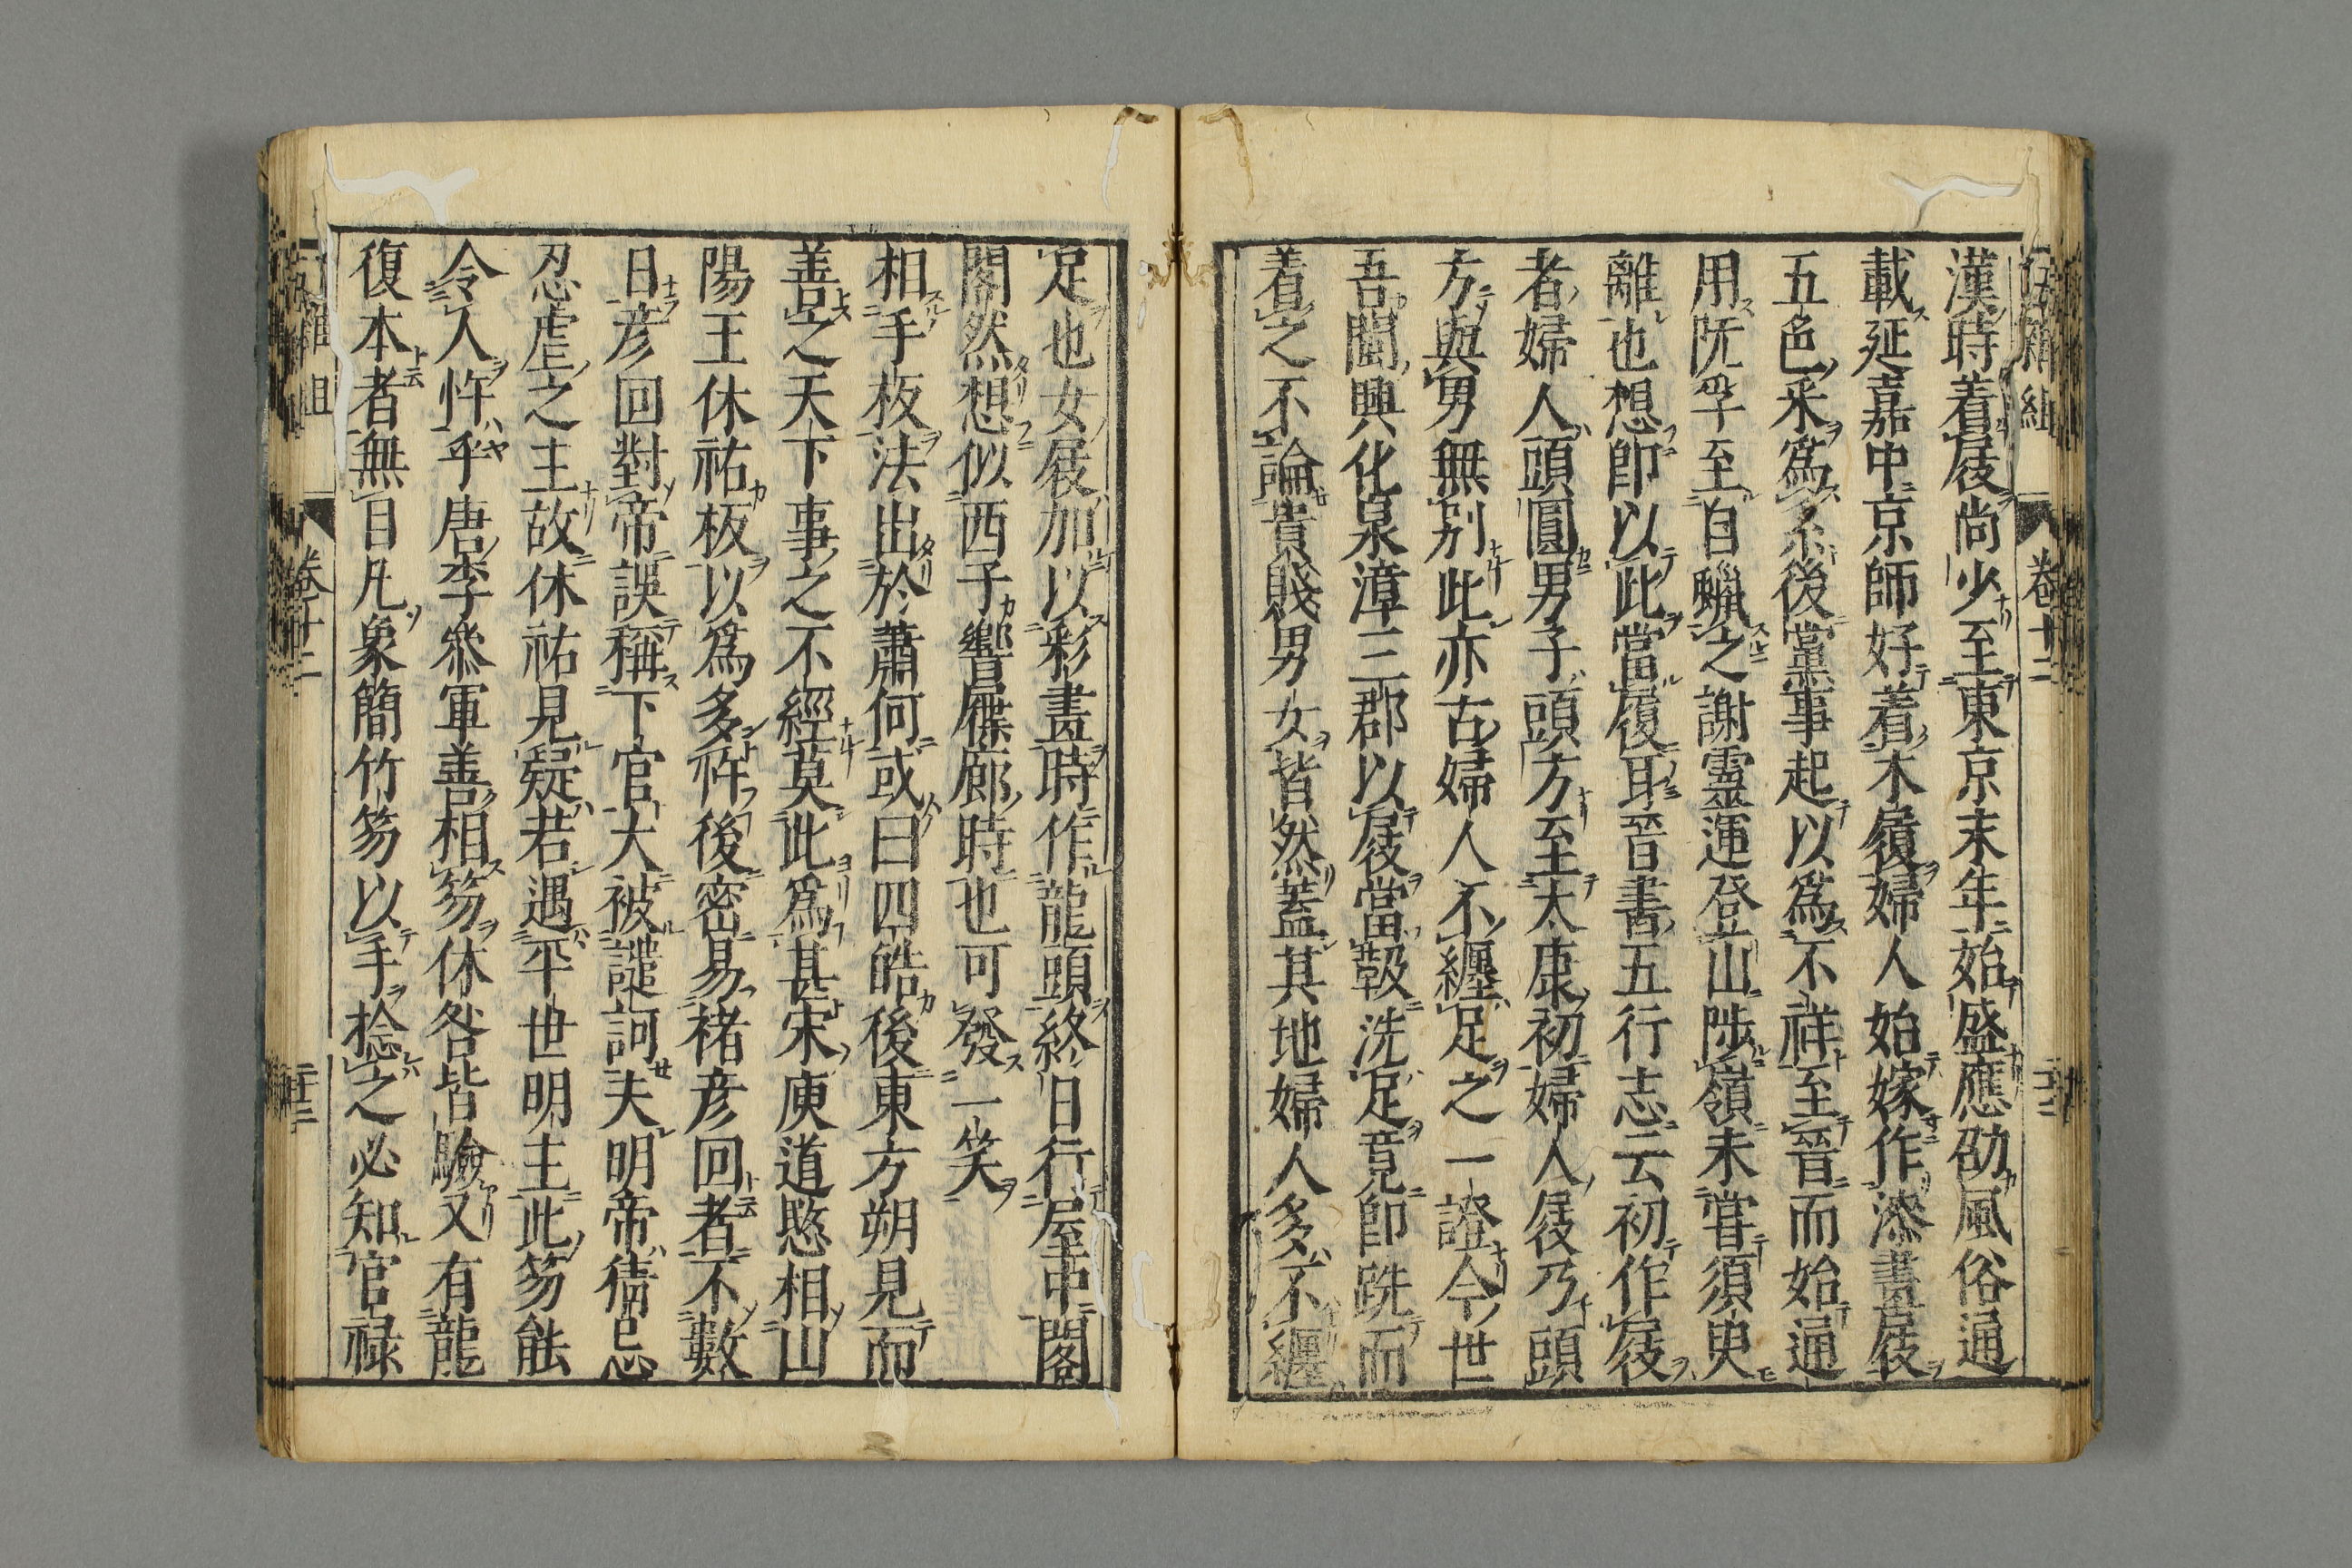 五雜組
卷十二
二十二
漢時着屐尚少至東京末年始盛應劭風俗通
載延嘉中京師好着木履婦人始嫁作漆畫屐
五色采爲系後黨事起以爲不祥至晉而始通
用阮孚至自蠟之謝靈運登山陟嶺未嘗須臾
離也想卽以此當履耳晉書五行志云初作屐
者婦人頭圓男子頭方至太康初婦人屐乃頭
方與男無別此亦古婦人不纏足之一證今世
吾閩興化泉漳三郡以屐當靸洗足竟卽跣而
着之不論貴賤男女皆然蓋其地婦人多不纏
足也女屐加以彩畫時作龍頭終日行屋中閣
閣然想似西子響屧廊時也可發一笑
相手板法出於蕭何或曰四皓後東方朔見而
善之天下事之不經莫此爲甚宋庾道愍相山
陽王休祐板以爲多忤後密易褚彥回者不數
日彥回對帝誤稱下官大被譴訶夫明帝猜忌
忍虐之主故休祐見疑若遇平世明主此笏能
令人忤乎唐李參軍善相笏休咎皆驗又有龍
復本者無目凡象簡竹笏以手捻之必知官祿
五雜組
卷十二
二十二